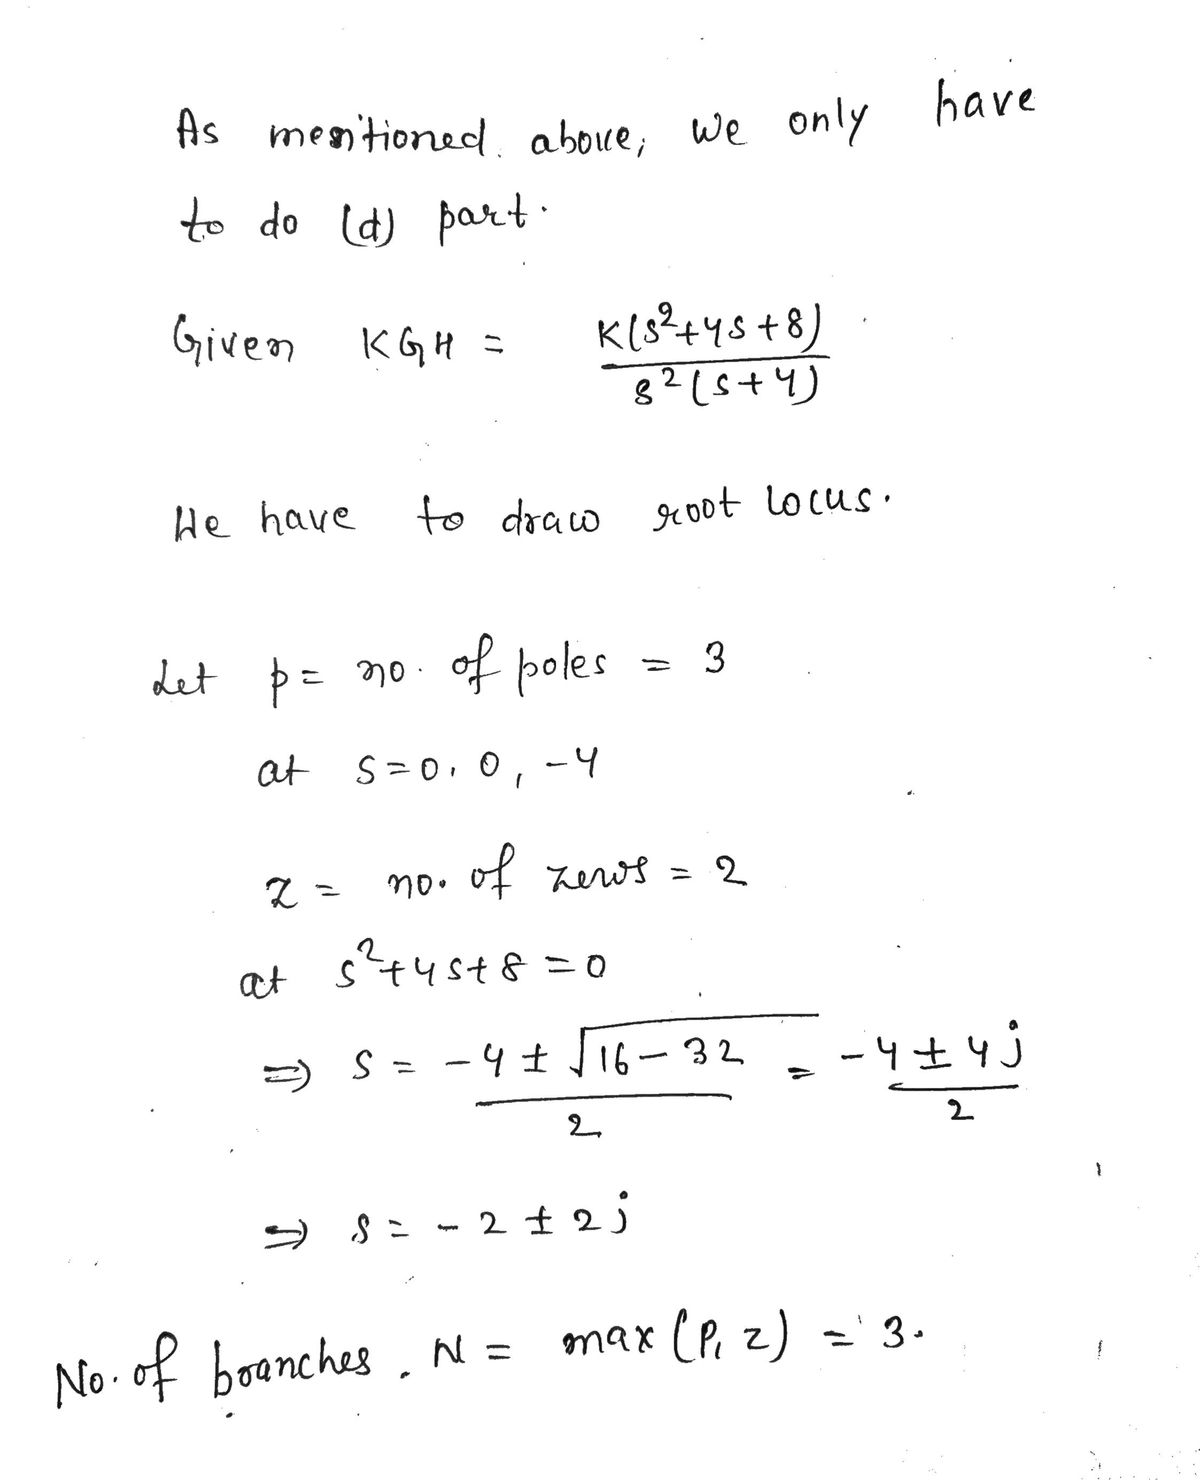 As mentioned above, we only have
to do (d) part.
Given KGH = K(s²+4s+8) / s²(s+4)
We have to draw root locus.
Let p = no. of poles = 3
at s=0, 0, -4
z = no. of zeros = 2
at s²+4s+8 = 0
⇒ s = -4 ± √16-32 / 2 = -4 ± 4j / 2
⇒ s = -2 ± 2j
No. of branches, N = max (P, z) = 3.